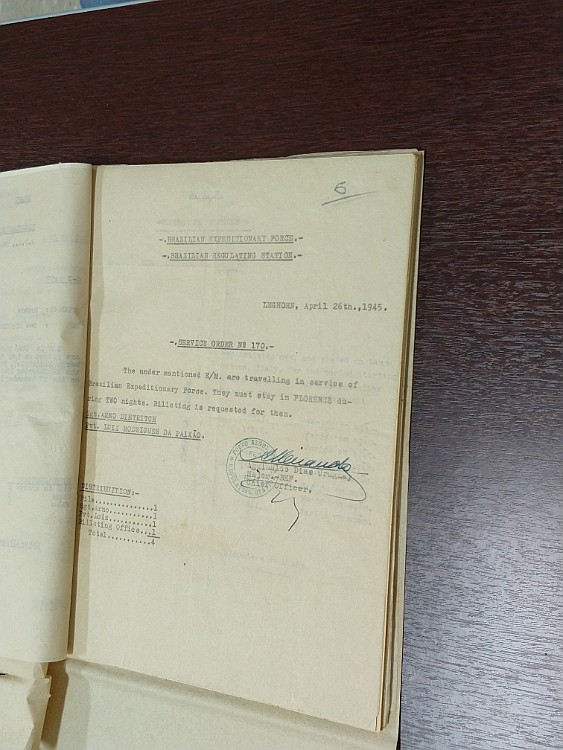 6
-.BRAZILIAN EXPEDITIONARY FORCE.-
-.BRAZILIAN REGULATING STATION.-
LEGHORN, April 26th.,1945.
-.SERVICE ORDER Nº 170.-
The under mentioned E/M. are travelling in service of
Brazilian Expeditionary Force. They must stay in FLORENCE du-
ring TWO nights. Billeting is requested for them.
Sgt.ARNO DIETRITCH
Pvt. LUIZ RODRIGUES DA PAIXÃO.
Major -BEF.
Chief Officer.
DISTRIBUTION:-
File...............1
Sgt.Arno...........1
Pvt.Luis...........1
Billeting Office...1
Total...........4